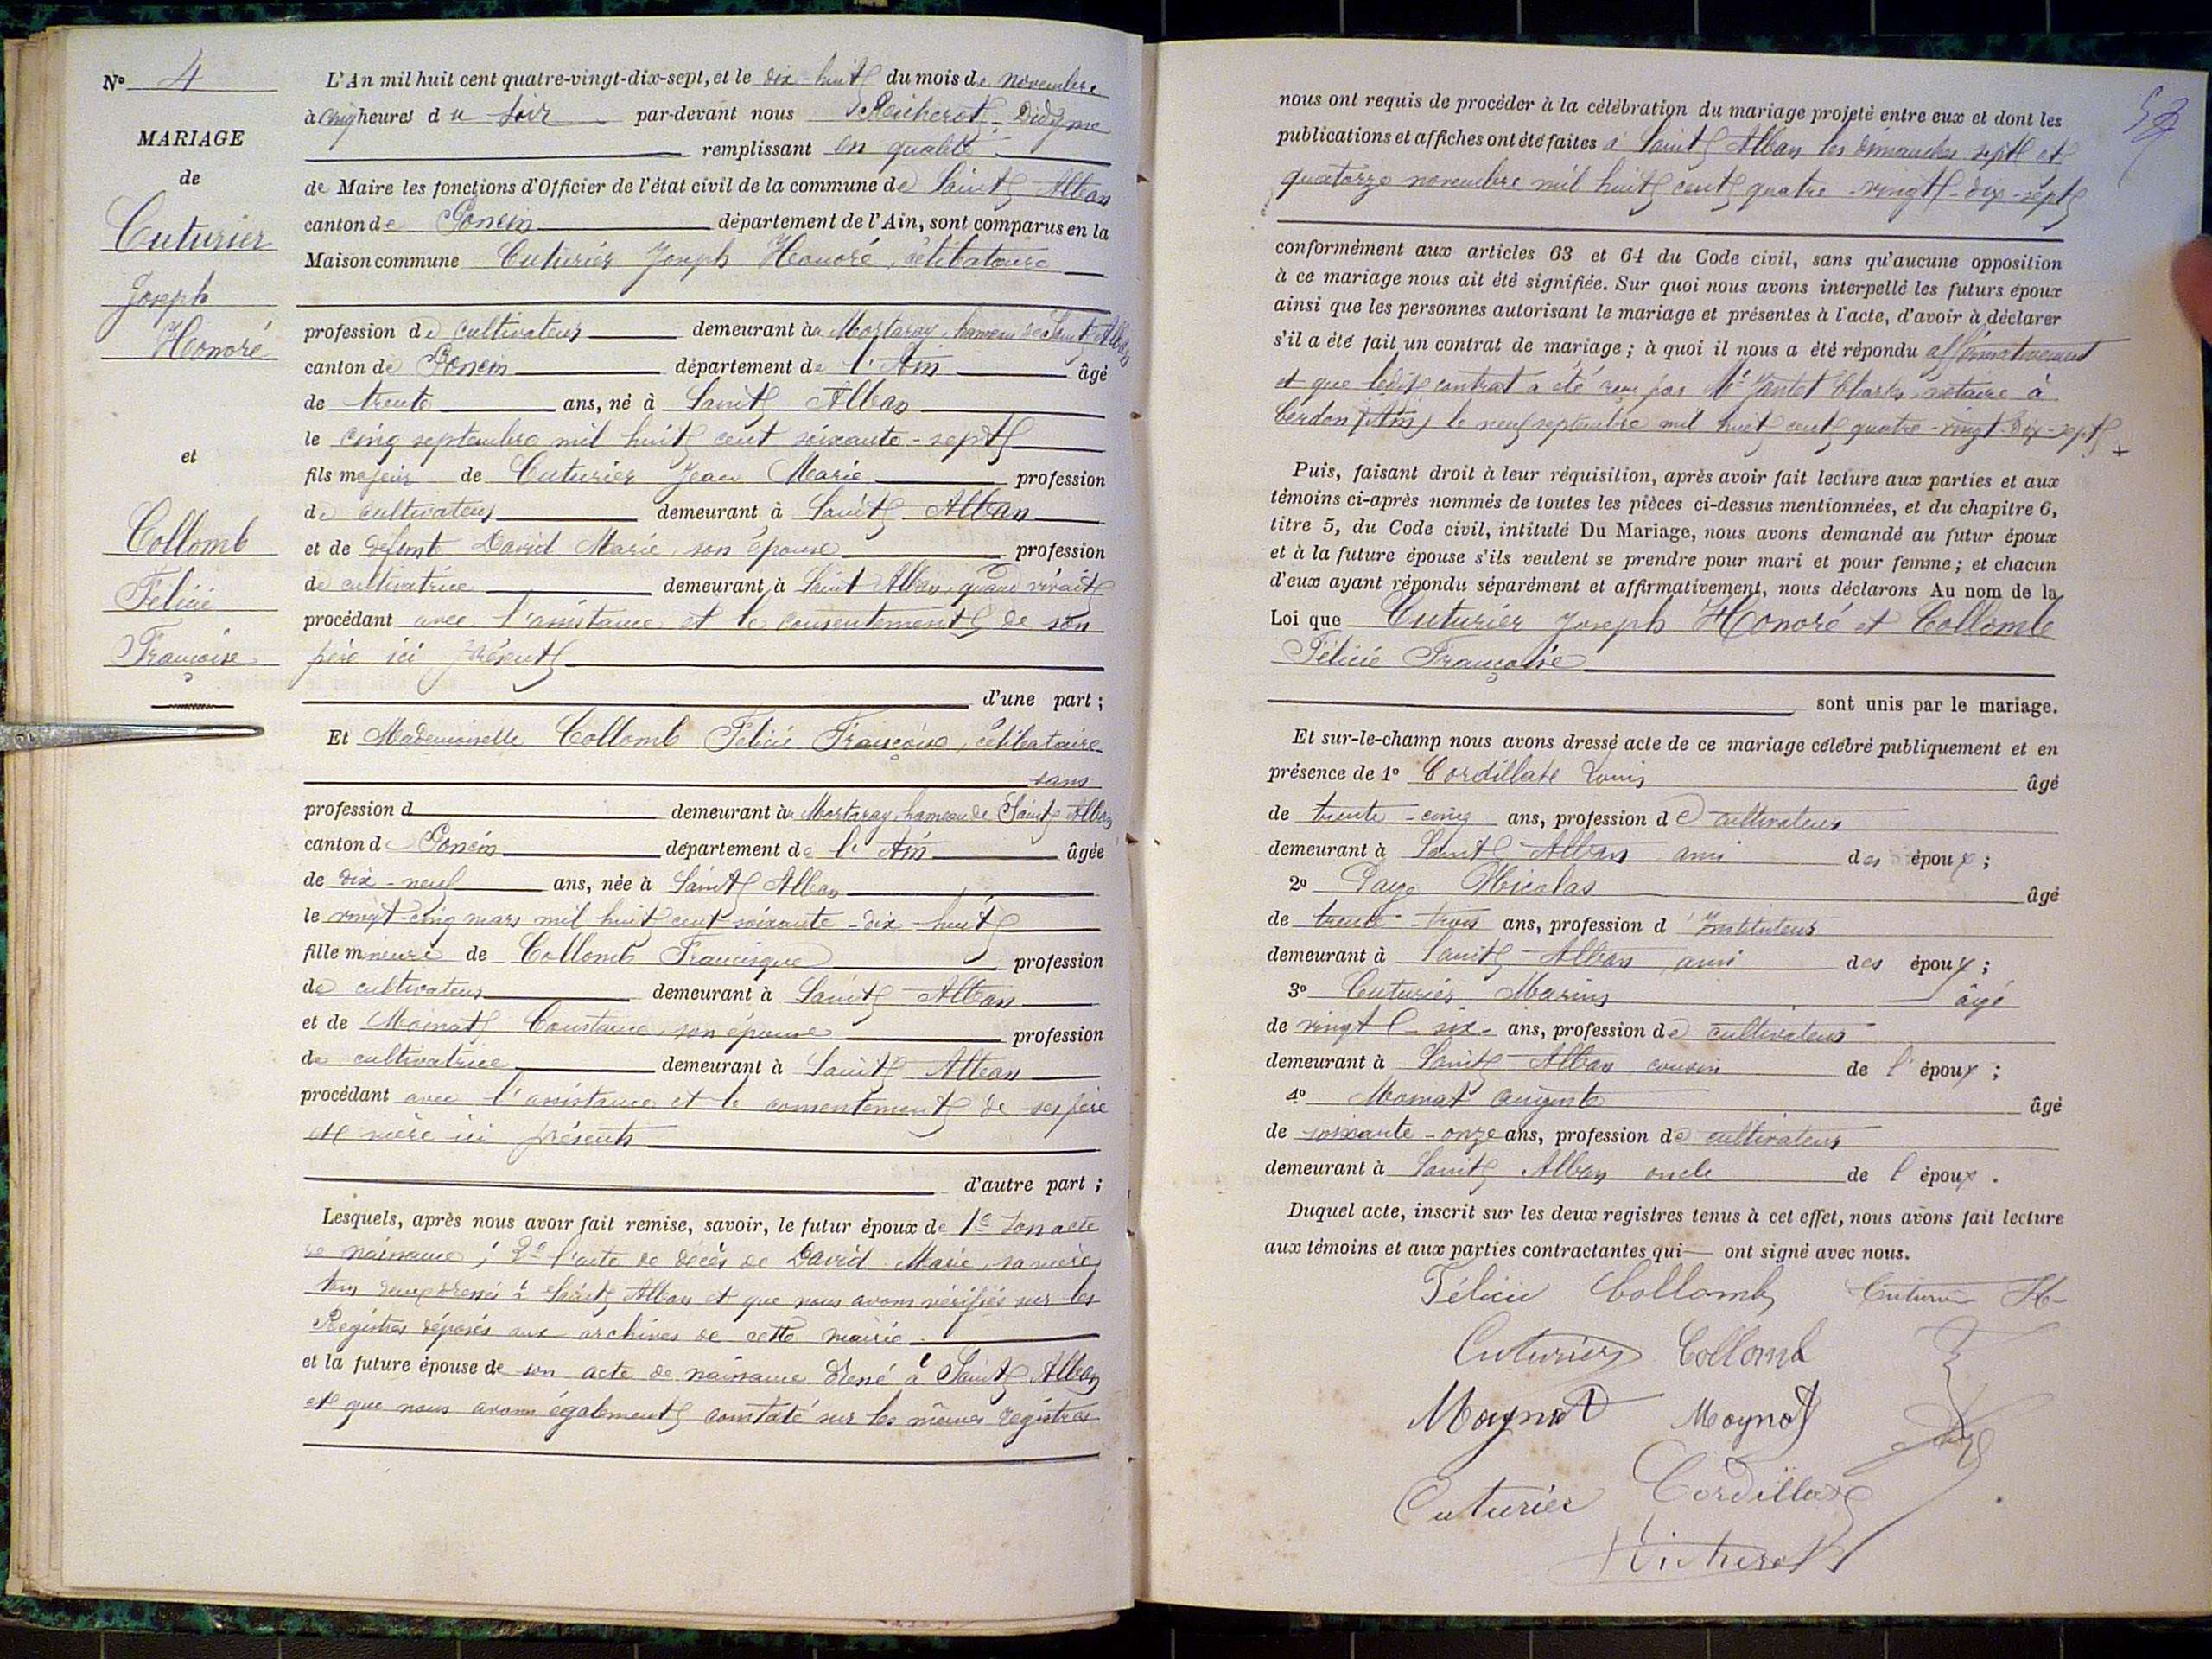 N° 4
MARIAGE
de
Cuturier
Joseph
Honoré
et
Collomb
Félicie
Françoise
L'An mil huit cent quatre-vingt-dix-sept, et le dix-huit du mois de novembre
à cinq heures du soir par-devant nous Richerot Didyme
remplissant en qualité
de Maire les fonctions d'Officier de l'état civil de la commune de Saint Alban
canton de Poncin département de l'Ain, sont comparus en la
Maison commune Cuturier Joseph Honoré, célibataire
profession de cultivateur demeurant à Mortaray, hameau de Saint Alban
canton de Poncin département de l'Ain âgé
de trente ans, né à Saint Alban
le cinq septembre mil huit cent soixante-sept
fils majeur de Cuturier Jean Marie profession
de cultivateur demeurant à Saint Alban
et de défunte David Marie son épouse profession
de cultivatrice demeurant à Saint Alban, quand vivait
procédant avec l'assistance et le consentement de son
père ici présent
d'une part ;
Et Mademoiselle Collomb Félicie Françoise, célibataire
sans
profession d demeurant à Mortaray, hameau de Saint Alban
canton de Poncin département de l'Ain âgée
de dix-neuf ans, née à Saint Alban
le vingt-cinq mars mil huit cent soixante-dix-huit
fille mineure de Collomb Francisque profession
de cultivateur demeurant à Saint Alban
et de Moinat Constance, son épouse profession
de cultivatrice demeurant à Saint Alban
procédant avec l'assistance et le consentement de ses père
et mère ici présents
d'autre part ;
Lesquels, après nous avoir fait remise, savoir, le futur époux de 1° son acte
de naissance ; 2° l'acte de décès de David Marie, sa mère
tous deux dressés à Saint Alban et que nous avons vérifiés sur les
Registres déposés aux archives de cette mairie
et la future épouse de son acte de naissance dressé à Saint Alban
et que nous avons également constaté sur les mêmes registres
nous ont requis de procéder à la célébration du mariage projeté entre eux et dont les
publications et affiches ont été faites à Saint Alban les dimanches sept et
quatorze novembre mil huit cent quatre-vingt-dix-sept
conformément aux articles 63 et 64 du Code civil, sans qu'aucune opposition
à ce mariage nous ait été signifiée. Sur quoi nous avons interpellé les futurs époux
ainsi que les personnes autorisant le mariage et présentes à l'acte, d'avoir à déclarer
s'il a été fait un contrat de mariage ; à quoi il nous a été répondu affirmativement
et que ledit contrat a été reçu par Me Jantet Charles, notaire à
Cerdon (Ain) le neuf septembre mil huit cent quatre-vingt-dix-sept
Puis, faisant droit à leur réquisition, après avoir fait lecture aux parties et aux
témoins ci-après nommés de toutes les pièces ci-dessus mentionnées, et du chapitre 6,
titre 5, du Code civil, intitulé Du Mariage, nous avons demandé au futur époux
et à la future épouse s'ils veulent se prendre pour mari et pour femme ; et chacun
d'eux ayant répondu séparément et affirmativement, nous déclarons Au nom de la
Loi que Cuturier Joseph Honoré et Collomb
Félicie Françoise
sont unis par le mariage.
Et sur-le-champ nous avons dressé acte de ce mariage célébré publiquement et en
présence de 1° Cordillat Louis âgé
de trente-cinq ans, profession de cultivateur
demeurant à Saint Alban ami des époux ;
2° Nicolas âgé
de trente-trois ans, profession d'Instituteur
demeurant à Saint-Alban ami des époux ;
3° Cuturier Marius âgé
de vingt-six ans, profession de cultivateur
demeurant à Saint-Alban cousin de l'époux ;
4° Moinat Auguste âgé
de soixante-onze ans, profession de cultivateur
demeurant à Saint Alban oncle de l'époux.
Duquel acte, inscrit sur les deux registres tenus à cet effet, nous avons fait lecture
aux témoins et aux parties contractantes qui ont signé avec nous.
Félicie Collomb Cuturier H
Cuturier Collomb
Moynat Moynat
Cuturier Cordillat
Richerot